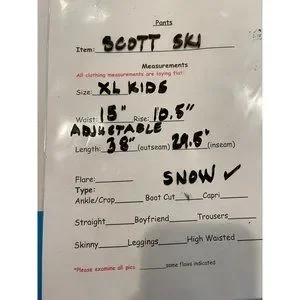 Pants
Item: SCOTT SKI
Measurements
All clothing measurements are laying flat:
Size: XL KIDS
Waist: 15" Rise: 10.5"
ADJUSTABLE
Length: 38" (outseam) 29.5" (inseam)
Flare: SNOW ✓
Type:
Ankle/Crop Boot Cut Capri
Straight Boyfriend Trousers
Skinny Leggings High Waisted
*Please examine all pics. some flaws indicated